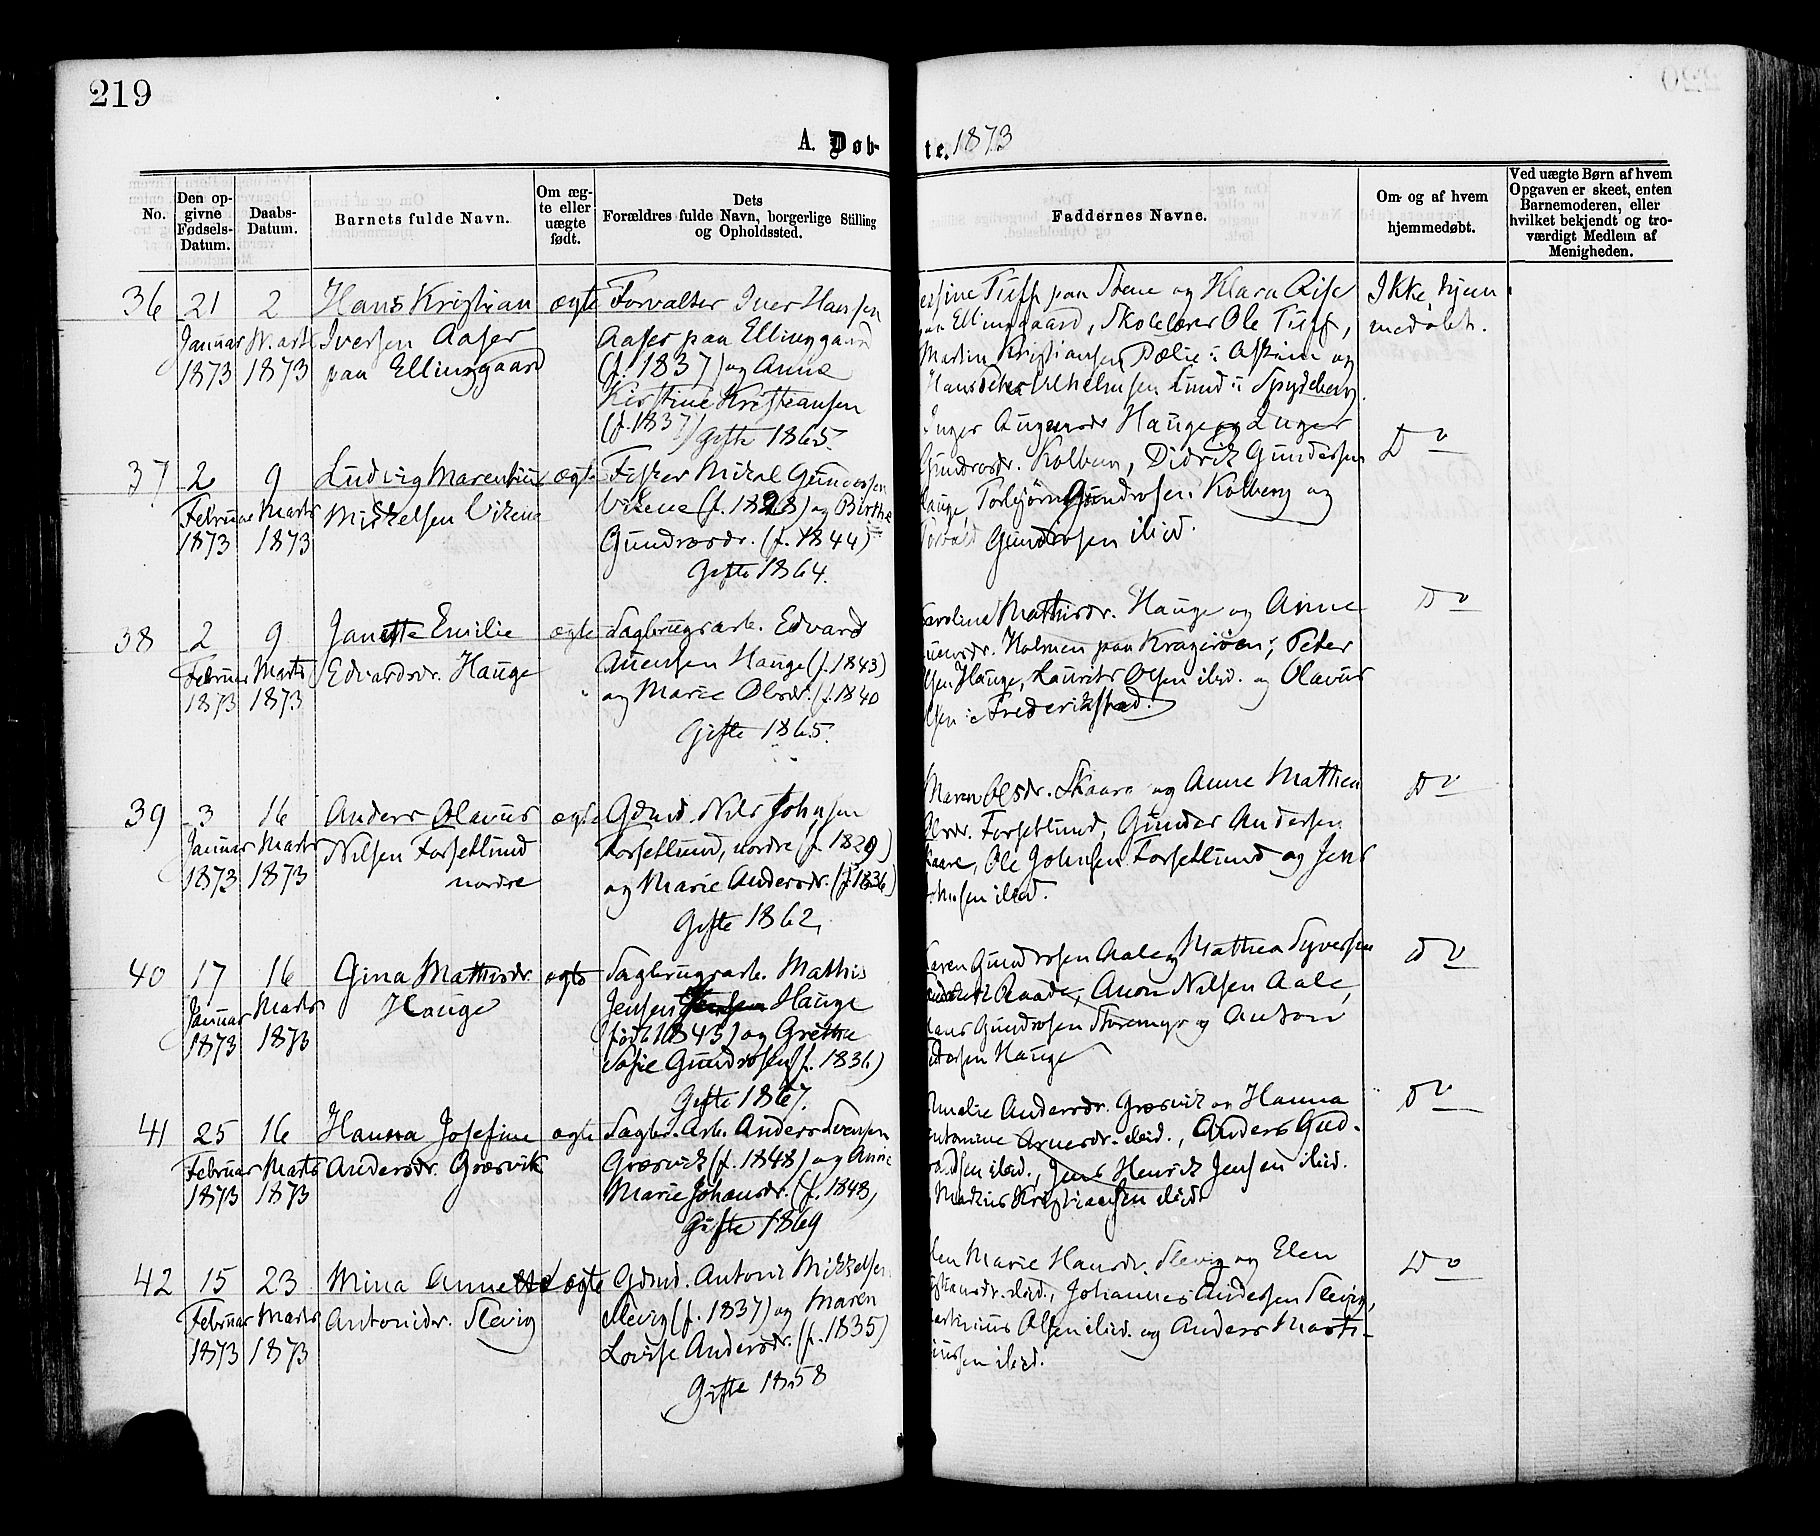 219
A. Døb-
te. 1873
No.
Den op-
givne
Fødsels-
Datum.
Daabs-
Datum.
Barnets fulde Navn.
Om æg-
te eller
uægte
født.
Dets
Forældres fulde Navn, borgerlige Stilling
og Opholdssted.
Faddernes Navne.
Om- og af hvem
hjemmedøbt.
Ved uægte Børn af hvem
Opgaven er skeet, enten
Barnemoderen, eller
hvilket bekjendt og tro-
værdigt Medlem af
Menigheden.
36
21
Januar
1873
2
Marts
1873
Hans Kristian
Iversen Aaser
paa Ellinggaard
ægte
Forvalter Iver Hansen
Aaser paa Ellinggaard
(f. 1837) og Anne
Kirstine Kristiansen
(f. 1837) Gifte 1865.
paa Stene og Klara Rise
paa Ellinggaard, Skolelærer Ole
Martin Kristiansen Dælie i Askim og
Hans Peter Vilhelmsen Lund i Spydeberg.
Ikke hjem
medøbt.
37
2
Februar
1873
9
Marts
1873
Ludvig Marentius
Mikkelsen Vikene
ægte
Fisker Mikal Gundersen
Vikene (f. 1828) og Birthe
Gundrosdr. (f. 1844)
Gifte 1864.
Inger Hauge og Inger
Gundrosdr. Kolberg, Didrik Gundersen
Hauge, Torbjørn Gundrosen Kolberg og
Gundrosen ibid.
Do
38
2
Februar
1873
9
Marts
1873
Janette Emilie
Edvardsdr. Hauge
ægte
Sagbrugsarb. Edvard
Auensen Hauge (f. 1843)
og Marie Olsdr. (f. 1840
Gifte 1865.
Karoline Mathisdr. Hauge og Anne
Holmen paa Kragerøen, Peter
Olsen Hauge, Laurits Olsen ibid. og Olavus
Olsen i Frederikstad.
Do
39
3
Januar
1873
16
Marts
1873
Anders Olavus
Nilsen Forsetlund
nordre
ægte
Gdmd. Nils Johnsen
Forsetlund, nordre (f. 1829)
og Marie Andersdr. (f. 1836)
Gifte 1862.
Maren Olsdr. Skaare og Anne Mathea
Olsdr. Forsetlund, Gunder Andersen
Skaare, Ole Johnsen Forsetlund og Jens
Johnsen ibid.
Do
40
17
Januar
1873
16
Marts
1873
Gina Mathisdr.
Hauge
ægte
Sagbrugsarb. Mathis
Jensen Jensen Hauge
(født 1843) og Grethe
Sofie Gundrosen (f. 1836)
Gifte 1867.
Karen Gundrosen Aale og Mathea Syversen
Raade, Anon Nilsen Aale,
Hans Gundrosen Storemyr og Anton
Hauge
Do
41
25
Februar
1873
16
Marts
1873
Hanna Josefine
Andersdr. Græsvik
ægte
Sagbr. Arb. Anders Svensen
Græsvik (f. 1848) og Anne
Marie Johansdr. (f. 1848)
Gifte 1869
Amalie Andersdr. Græsvik og Hanna
Antonine Arnesdr. ibid., Anders Gud-
ibid., Jens Henrik Jensen ibid.
Markus Kristiansen ibid.
Do
42
15
Februar
1873
23
Marts
1873
Mina Annette
Antonidr. Slevig
ægte
Gdmd. Antoni Mikkelsen
Slevig (f. 1837) og Maren
Lovise Andersdr. (f. 1835)
Gifte 1858
Elen Marie Hansdr. Slevig og Elen
Kristiansdr. ibid., Johannes Andersen Slevig,
Martinius Olsen ibid. og Anders Marti-
niussen ibid.
Do